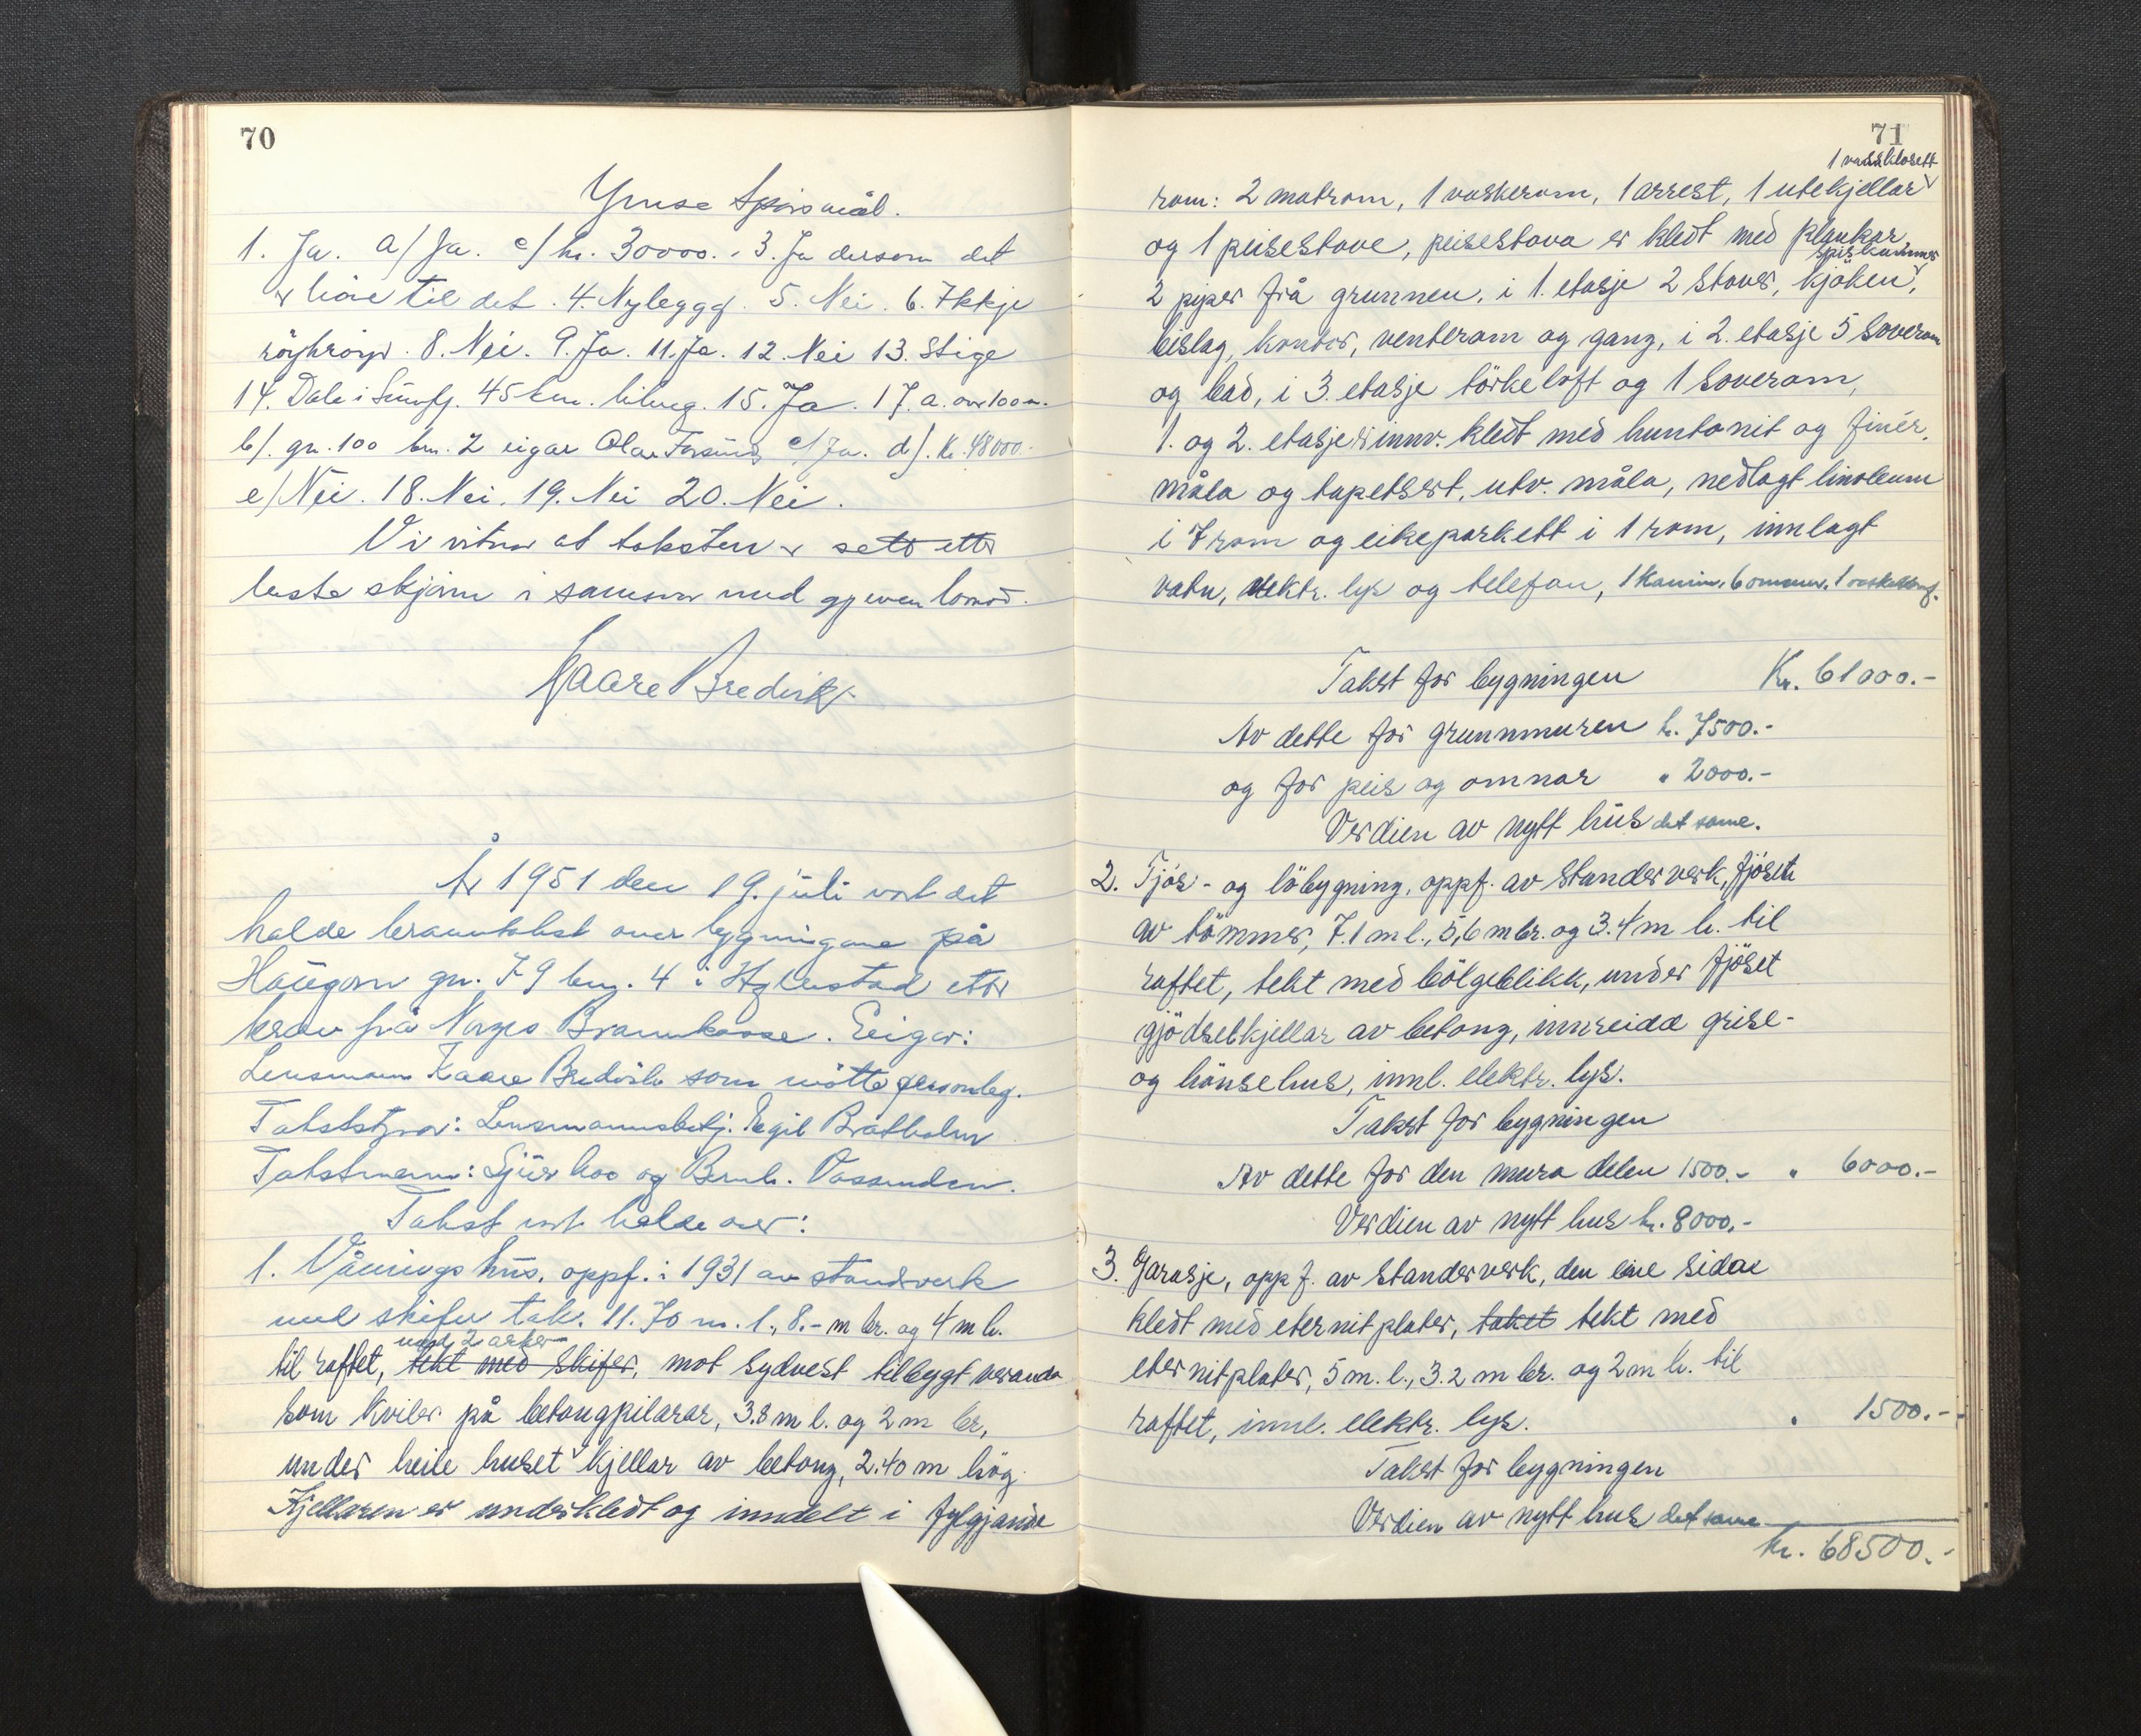 70
Ymse Spörsmål.
1. Ja. a/ Ja. c/ kr. 30000.- 3. Ja dersom det
er höve til det. 4. Nyleggg. 5. Nei. 6. Ikkje
röykröyr. 8. Nei. 9. Ja. 11. Ja. 12. Nei 13. Stige
14. Dale i Sunnfj. 45 km. bilveg. 15. Ja. 17. a. over 100 m.
b/. gn. 100 bn. 2 eigar Olav c/ Ja. d/. Kr. 48000.-
e/ Nei. 18. Nei. 19. Nei 20. Nei.
Vi vitnar at taksten er sett etter
beste skjönn i samsvar med gjeven lovnad.
Kaare Bredvik
År 1951 den 19. juli vart det
halde branntakst over bygningane på
Haugen gn. 79 bn. 4 i Hyllestad etter
krav frå Norges Brannkasse. Eigar:
Lensmann Kaare Bredvik som mötte personleg.
Takststyrar: Lensmannsbetj. Egil Bratholm
Takstmenn: Sjur Hoo og Bernh. Vassenden.
Takst vart halde over:
1. Våningshus, oppf. i 1931 av standverk
med skifer tak. 11.70 m. l., 8.- m br. og 4 m h.
med 2 arker
til raftet, tekt med skifer, mot sydvest tilbygt veranda
som kviler på betongpilarar, 3.8 m l. og 2 m br,
under heile huset kjellar av betong, 2.40 m hög.
Kjellaren er underkledt og inndelt i fylgjande
71
1 vassklosett
rom: 2 matrom, 1 vaskerom, 1 arrest, 1 utekjellar
og 1 peisestove, peisestova er kledt med plankar
spiskammer
2 piper frå grunnen, i 1. etasje 2 stover, kjöken,
bislag, kontor, venterom og gang, i 2. etasje 5 soverom
og bad, i 3. etasje törkeloft og 1 soverom,
1. og 2. etasje er innv. kledt med huntonit og finér,
måla og tapetsert, utv. måla, nedlagt linoleum
i 7 rom og eikeparkett i 1 rom, innlagt
vatn, elektr. lys og telefon, 1 kamin, 6 omnar, 1
Takst for bygningen Kr. 61000.-
Av dette for grunnmuren kr. 7500.-
og for peis og omnar " 2000.-
Verdien av nytt hus det same.
2. Fjös- og löbygning, oppf. av standerverk, fjöset
av tömmer, 7.1 m l., 5,6 m br. og 3.4 m h. til
raftet, tekt med bölgeblikk, under fjöset
gjödselkjellar av betong, innreidd grise-
og hönsehus, innl. elektr. lys.
Takst for bygningen
Av dette for den mura delen 1500.- " 6000.-
Verdien av nytt hus kr. 8000.-
3. Garasje, oppf. av standerverk, den eine sida
kledt med eternitplater, taket tekt med
eternitplater, 5 m. l., 3.2 m br. og 2 m h. til
raftet, innl. elektr. lys. " 1500.-
Takst for bygningen
Verdien av nytt hus det same
kr. 68500.-